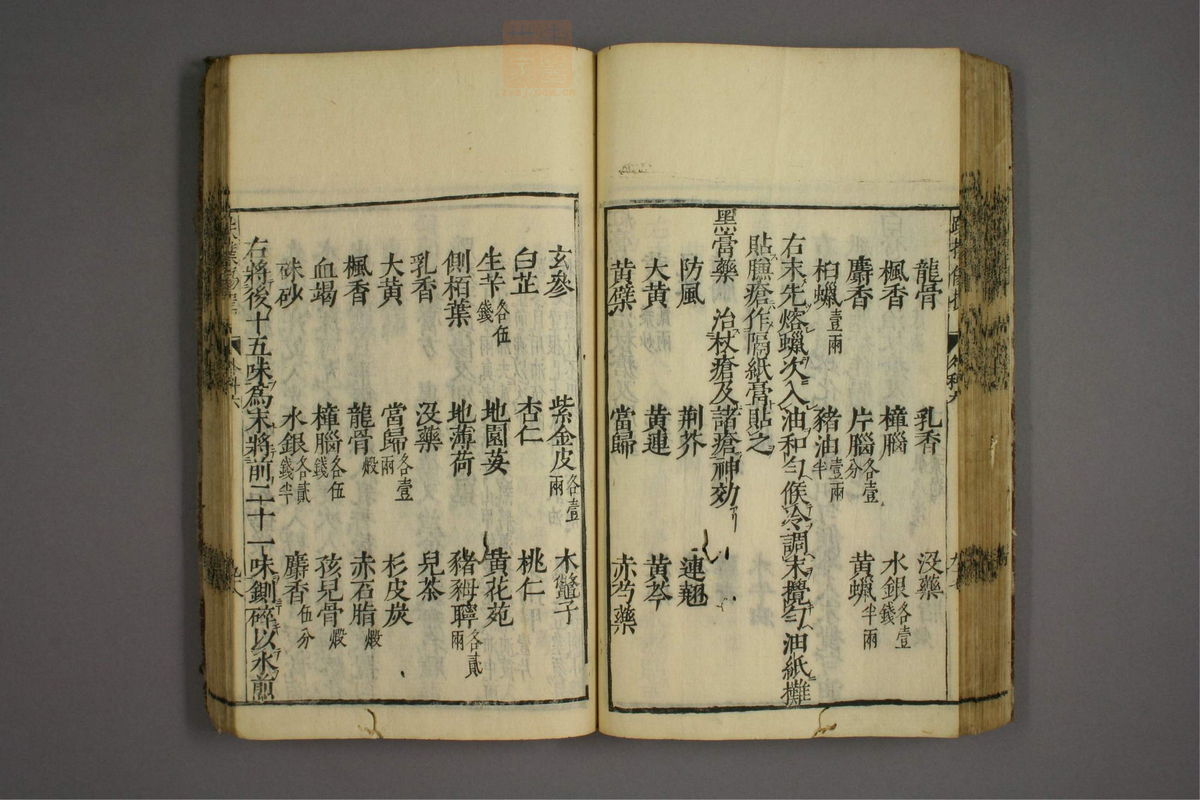 龍骨 乳香 沒藥
楓香 樟腦 水銀各壹錢
麝香 片腦各壹分 黃蠟半兩
桕蠟壹兩 豬油壹兩半
右末先熔蠟次入油和勻候冷調末攪勻油紙攤
貼臁瘡作隔紙膏貼之
黑膏藥 治杖瘡及諸瘡神効
防風 荊芥 連翹
大黃 黃連 黃芩
黃蘗 當歸 赤芍藥
玄參 紫金皮各壹兩 木鱉子
白芷 杏仁 桃仁
生芐各伍錢 地園荽 黃花苑
側栢葉 地薄荷 豬㛇聹各貳兩
乳香 沒藥 兒茶
大黃 當歸各壹兩 杉皮炭
楓香 龍骨煅 赤石脂煅
血竭 樟腦各伍錢 孩兒骨煅
硃砂 水銀各貳錢半 麝香伍分
右將後十五味為末將前二十一味剉碎以水煎